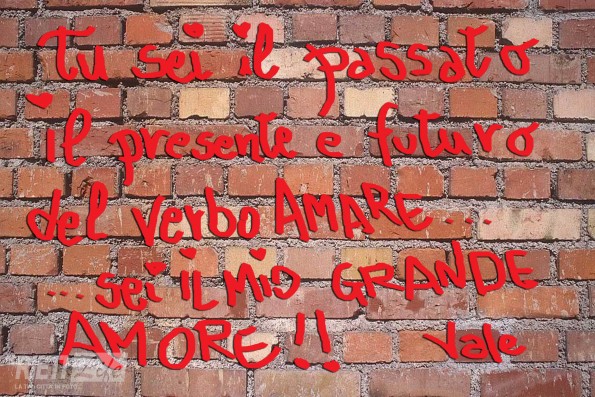 tu sei il passato
il presente e futuro
del verbo AMARE...
...sei IL MIO GRANDE
AMORE!!
Vale